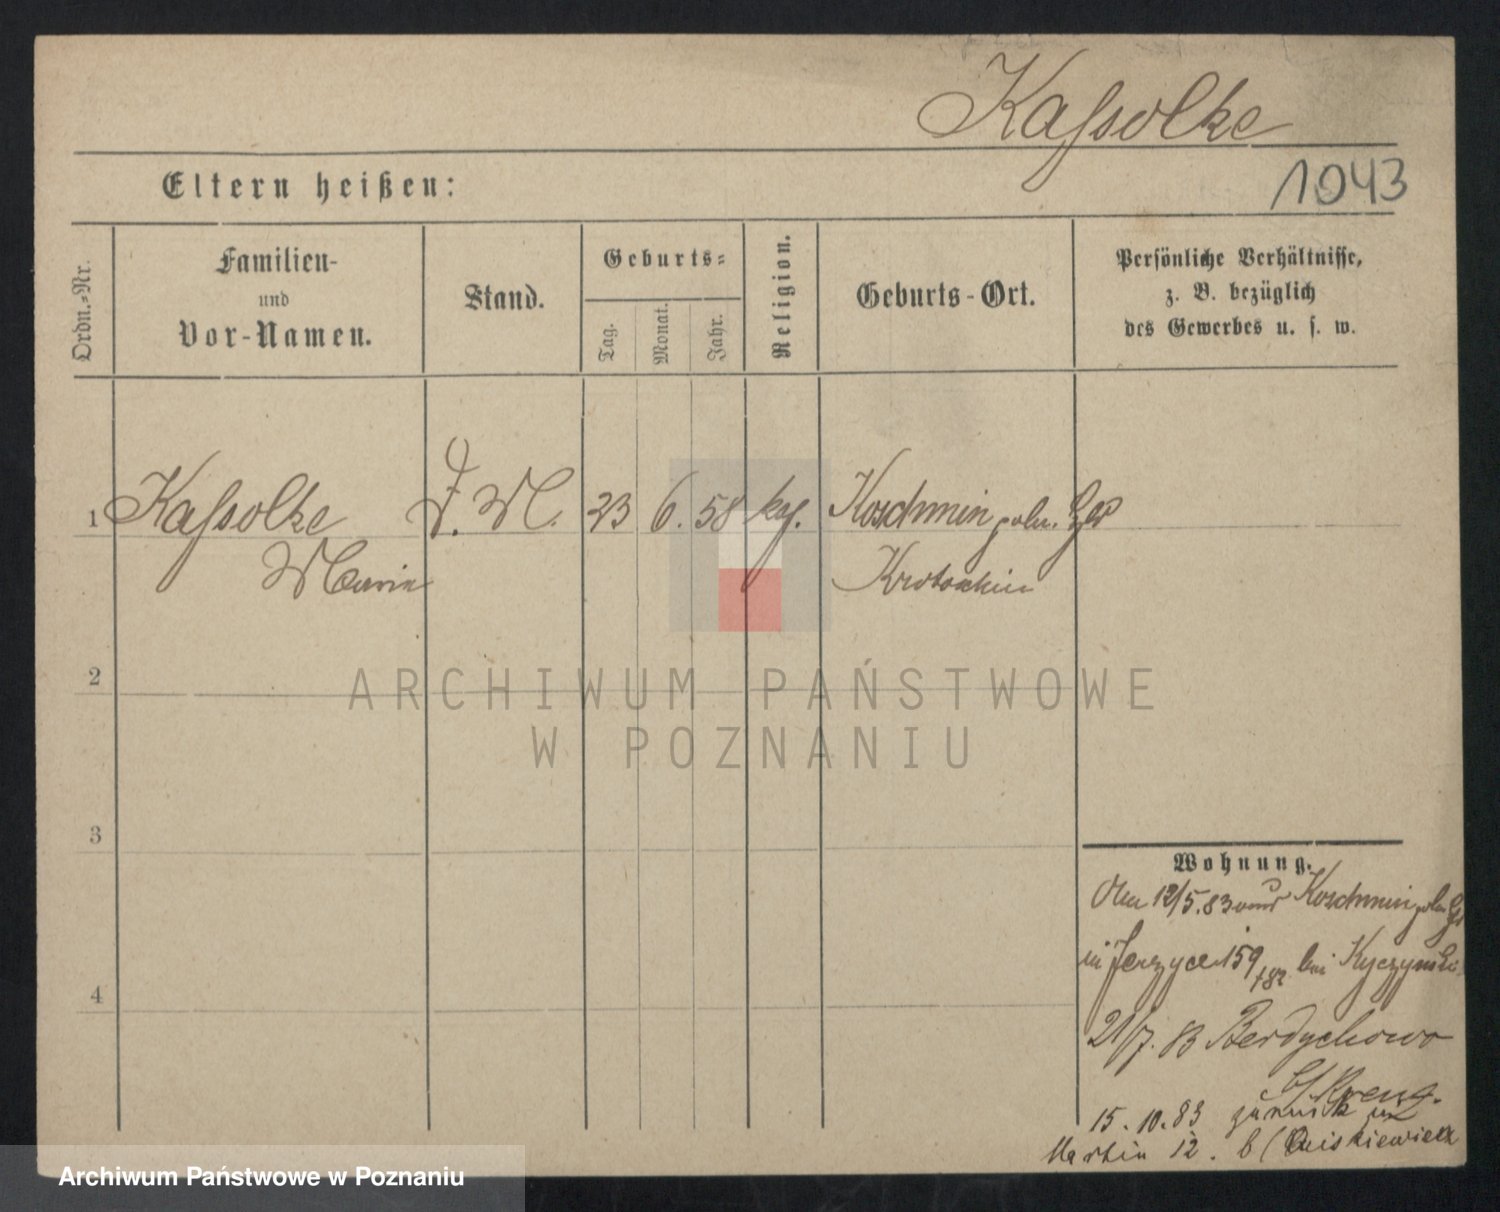 Kaſsolke
Eltern heißen:
1043
Ordn.=Nr.
Familien-
und
Vor-Namen.
Stand.
Geburts=
Tag.
Monat.
Jahr.
Religion.
Geburts-Ort.
Persönliche Verhältnisse,
z. B. bezüglich
des Gewerbes u. s. w.
1 Kaſsolke D. M. 23 6. 58 kg. Koschmin poln.
Marie Krotoschin
2
3
4
Wohnung.
12/5.83 Koschmin
in Jerzyce 159 bei
21/7. 83 Berdychowo
b/ Krenz.
15. 10. 83 zurück
Martin 12. b/
ARCHIWUM PAŃSTWOWE
W POZNANIU
Archiwum Państwowe w Poznaniu